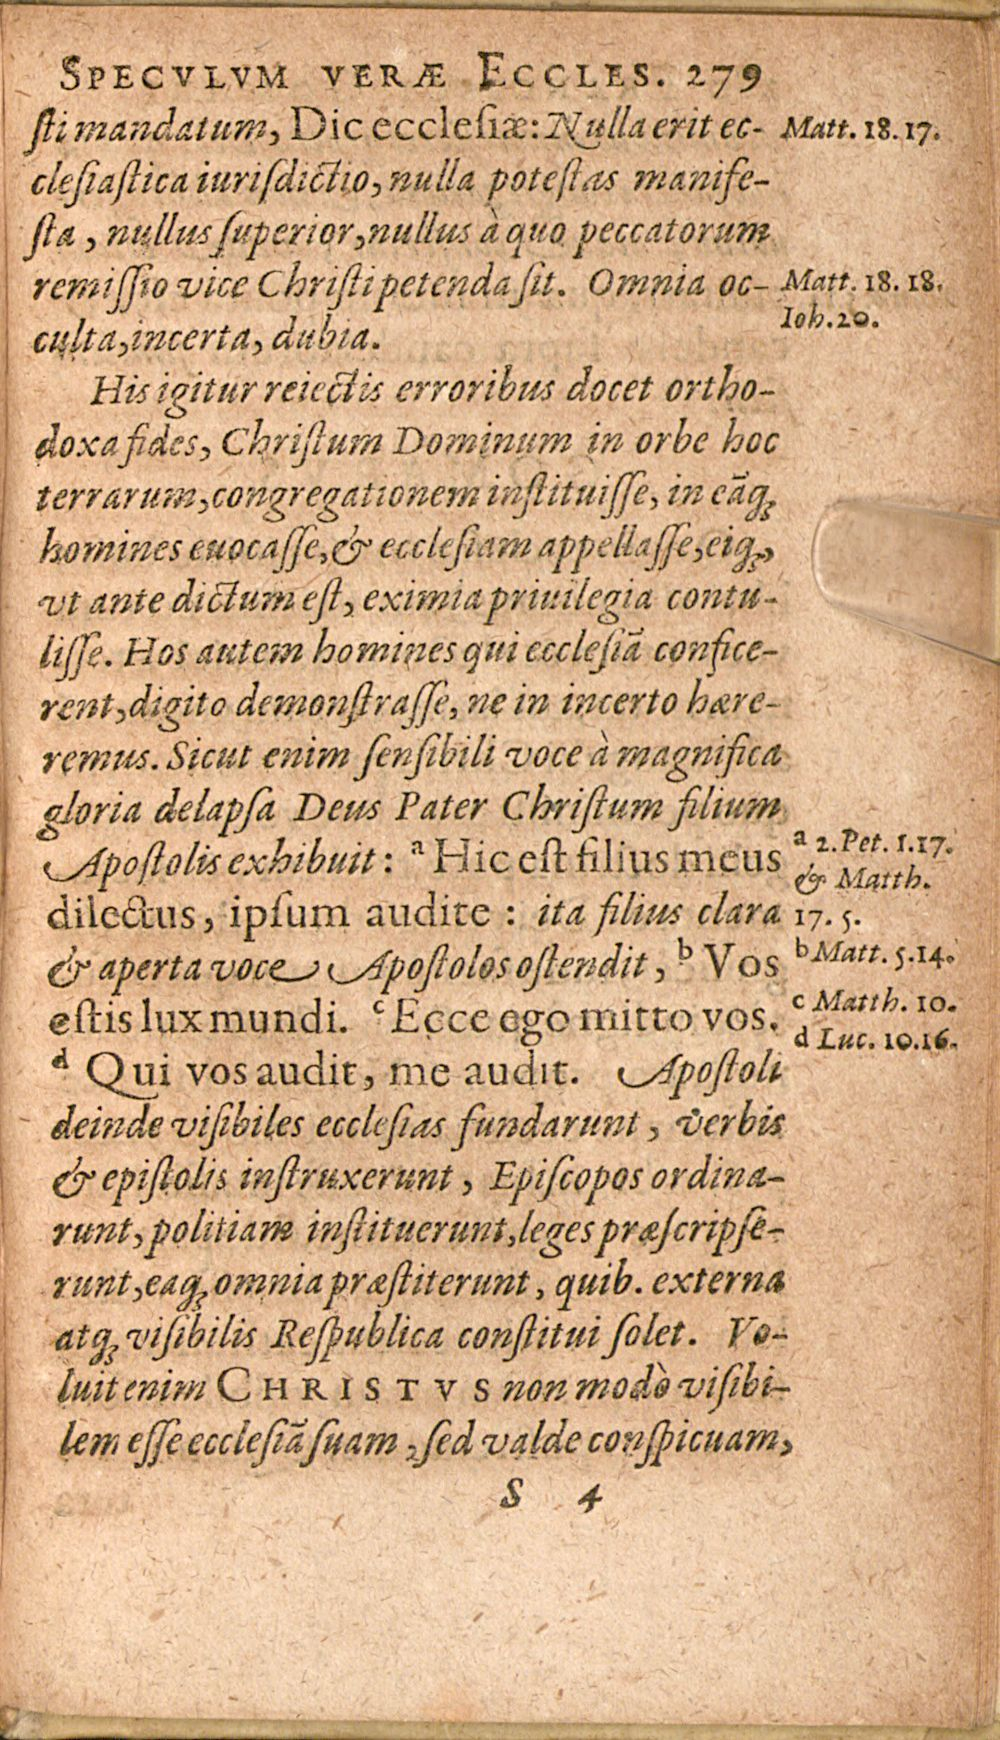 SPECVLVM VERÆ ECCLES. 279
ſti mandatum, Dic ecclesiæ: Nulla erit ec-
cleſiaſtica iuriſdictio, nulla poteſtas manife-
ſta, nullus ſuperior, nullus à quo peccatorum
remiſſio vice Chriſti petenda ſit. Omnia oc-
culta, incerta, dubia.
Matt. 18. 17.
Matt. 18. 18.
Ioh. 20.
His igitur reiectis erroribus docet ortho-
doxa fides, Chriſtum Dominum in orbe hoc
terrarum, congregationem inſtituiſſe, in eãq;
homines euocaſſe, & eccleſiam appellaſſe, eiq;,
vt ante dictum eſt, eximia priuilegia contu-
liſſe. Hos autem homines qui eccleſiã confice-
rent, digito demonſtraſſe, ne in incerto hære-
remus. Sicut enim ſenſibili voce à magnifica
gloria delapſa Deus Pater Chriſtum filium
Apoſtolis exhibuit: a Hic eſt filius meus
dilectus, ipſum audite: ita filius clara
& aperta voce Apoſtolos oſtendit, b Vos
eſtis lux mundi. c Ecce ego mitto vos.
d Qui vos audit, me audit. Apoſtoli
deinde viſibiles eccleſias fundarunt, verbis
& epiſtolis inſtruxerunt, Epiſcopos ordina-
runt, politiam inſtituerunt, leges præſcripſe-
runt, eaq; omnia præſtiterunt, quib. externa
atq; viſibilis Reſpublica conſtitui ſolet. Vo-
luit enim CHRISTVS non modò viſibi-
lem eſſe eccleſiã ſuam, ſed valde conſpicuam,
a 2. Pet. 1. 17.
& Matth.
17. 5.
b Matt. 5. 14.
c Matth. 10.
d Luc. 10. 16.
S 4